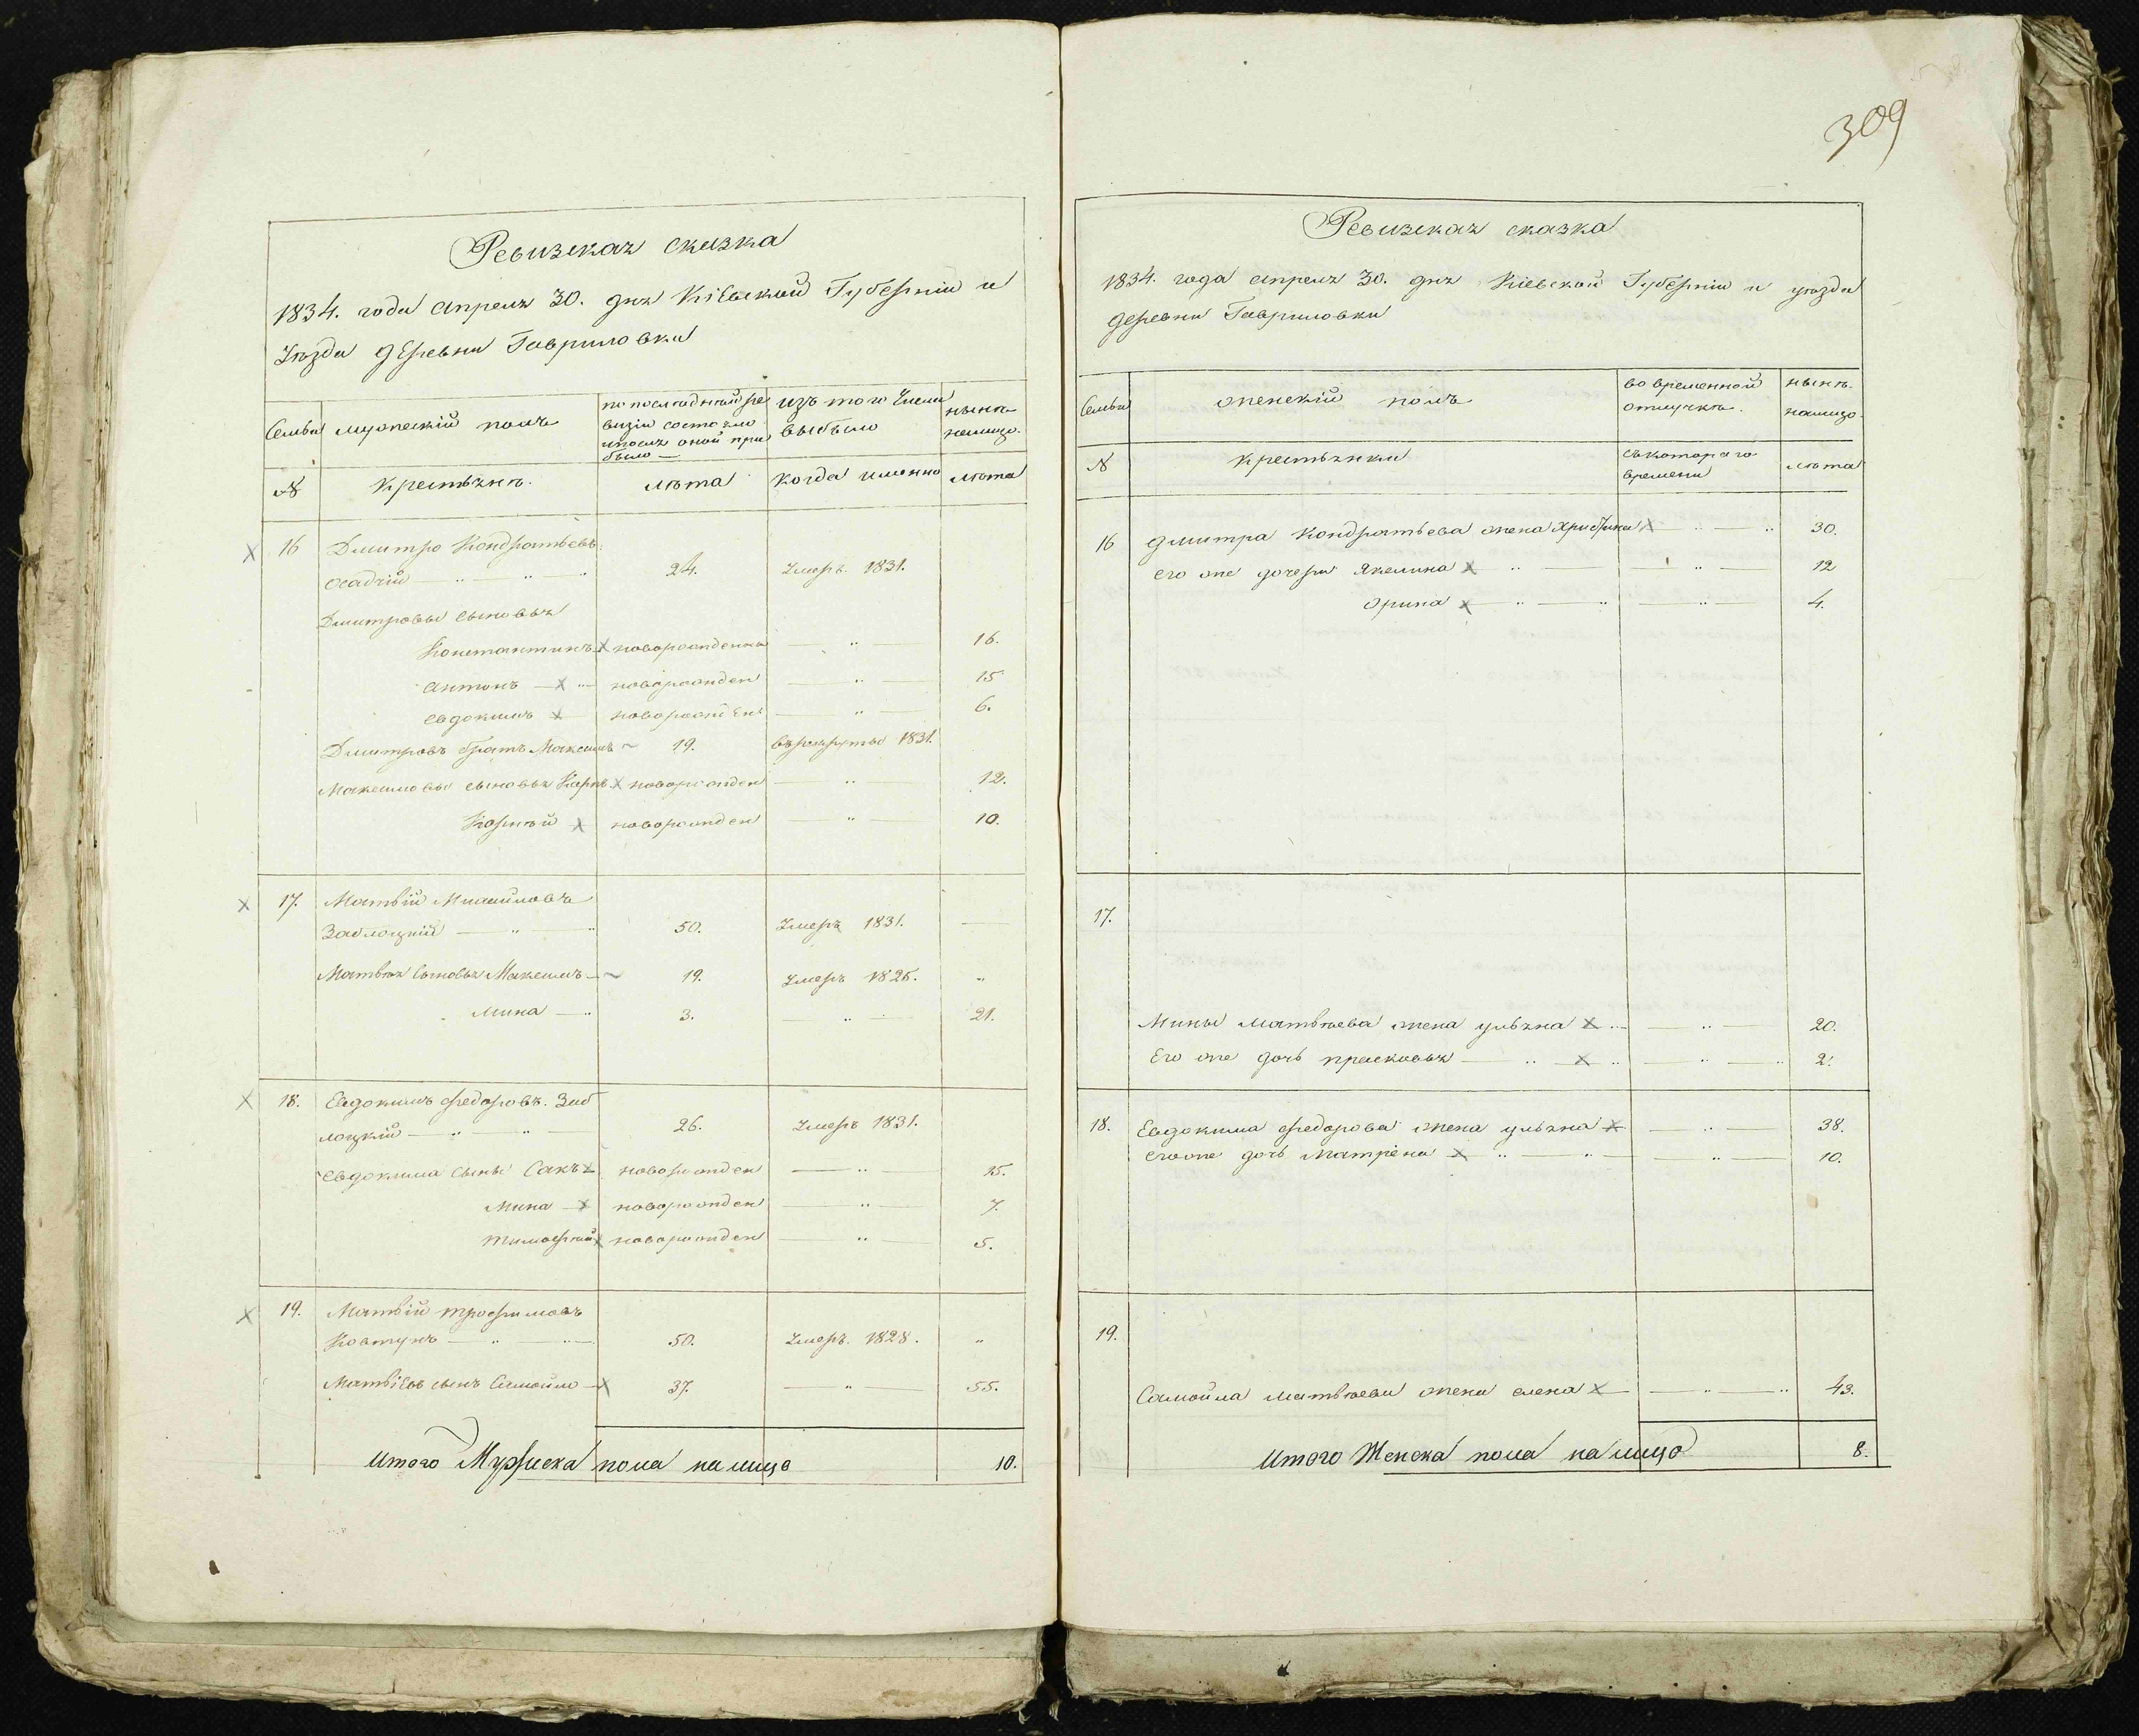 Ревизская сказка
1834. года апреля 30. дня Кіевской Губерніи и
Уѣзда деревни Гавриловки
Семьи мужескій полъ по последнѣй ре визіи состояло ипослѣ оной при было — изъ того Числа выбыло нынѣ налицо.
№ Крестьянѣ. лѣта Когда именно лѣта
16 Дмитро Кондратьевъ
осадчій 24. Умеръ. 1831.
Дмитровы сыновья
Константинъ новорожденны 16.
антонъ новорожден 15
евдокимъ новорожден 6.
Дмитровъ братъ Максимъ 19. врекруты 1831.
Максимовы сыновья Карпъ новорожден 12.
Корнѣй новорожден 10.
17. Матвій Михайловъ
Заблоцкій 50. Умеръ 1831.
Матвѣя сыновья Максимъ 19. Умеръ 1826.
Мина 3. 21.
18. Евдокимъ федоровъ. Заб
лоцкій 26. Умеръ 1831.
Евдокима сыны Сакъ новорожден 15.
Мина новорожден 7.
тимофѣй новорожден 5.
19. Матвій трофимовъ
Ковтунъ 50. Умеръ. 1828.
Матвіевъ сынъ Самойло 37. 55.
Итого Мужеска пола на лицо 10.
309
Ревизская сказка
1834. года апреля 30. дня Кіевской Губерніи и уѣзда
деревни Гавриловки
Семьи женскій полъ во временной отлучкѣ. нынѣ. налицо.
№ крестьянки съкотораго времени лѣта
16 дмитра Кондратьева жена Христина 30.
его же дочери Якелина 12
Орина 4.
17.
Мины матвѣева жена ульяна 20.
Его же дочь прасковья 2.
18. Евдокима федорова жена ульяна 38.
егоже дочь Матрёна 10.
19.
Самойла матвѣева жена елена 43.
Итого Женска пола на лицо 8.